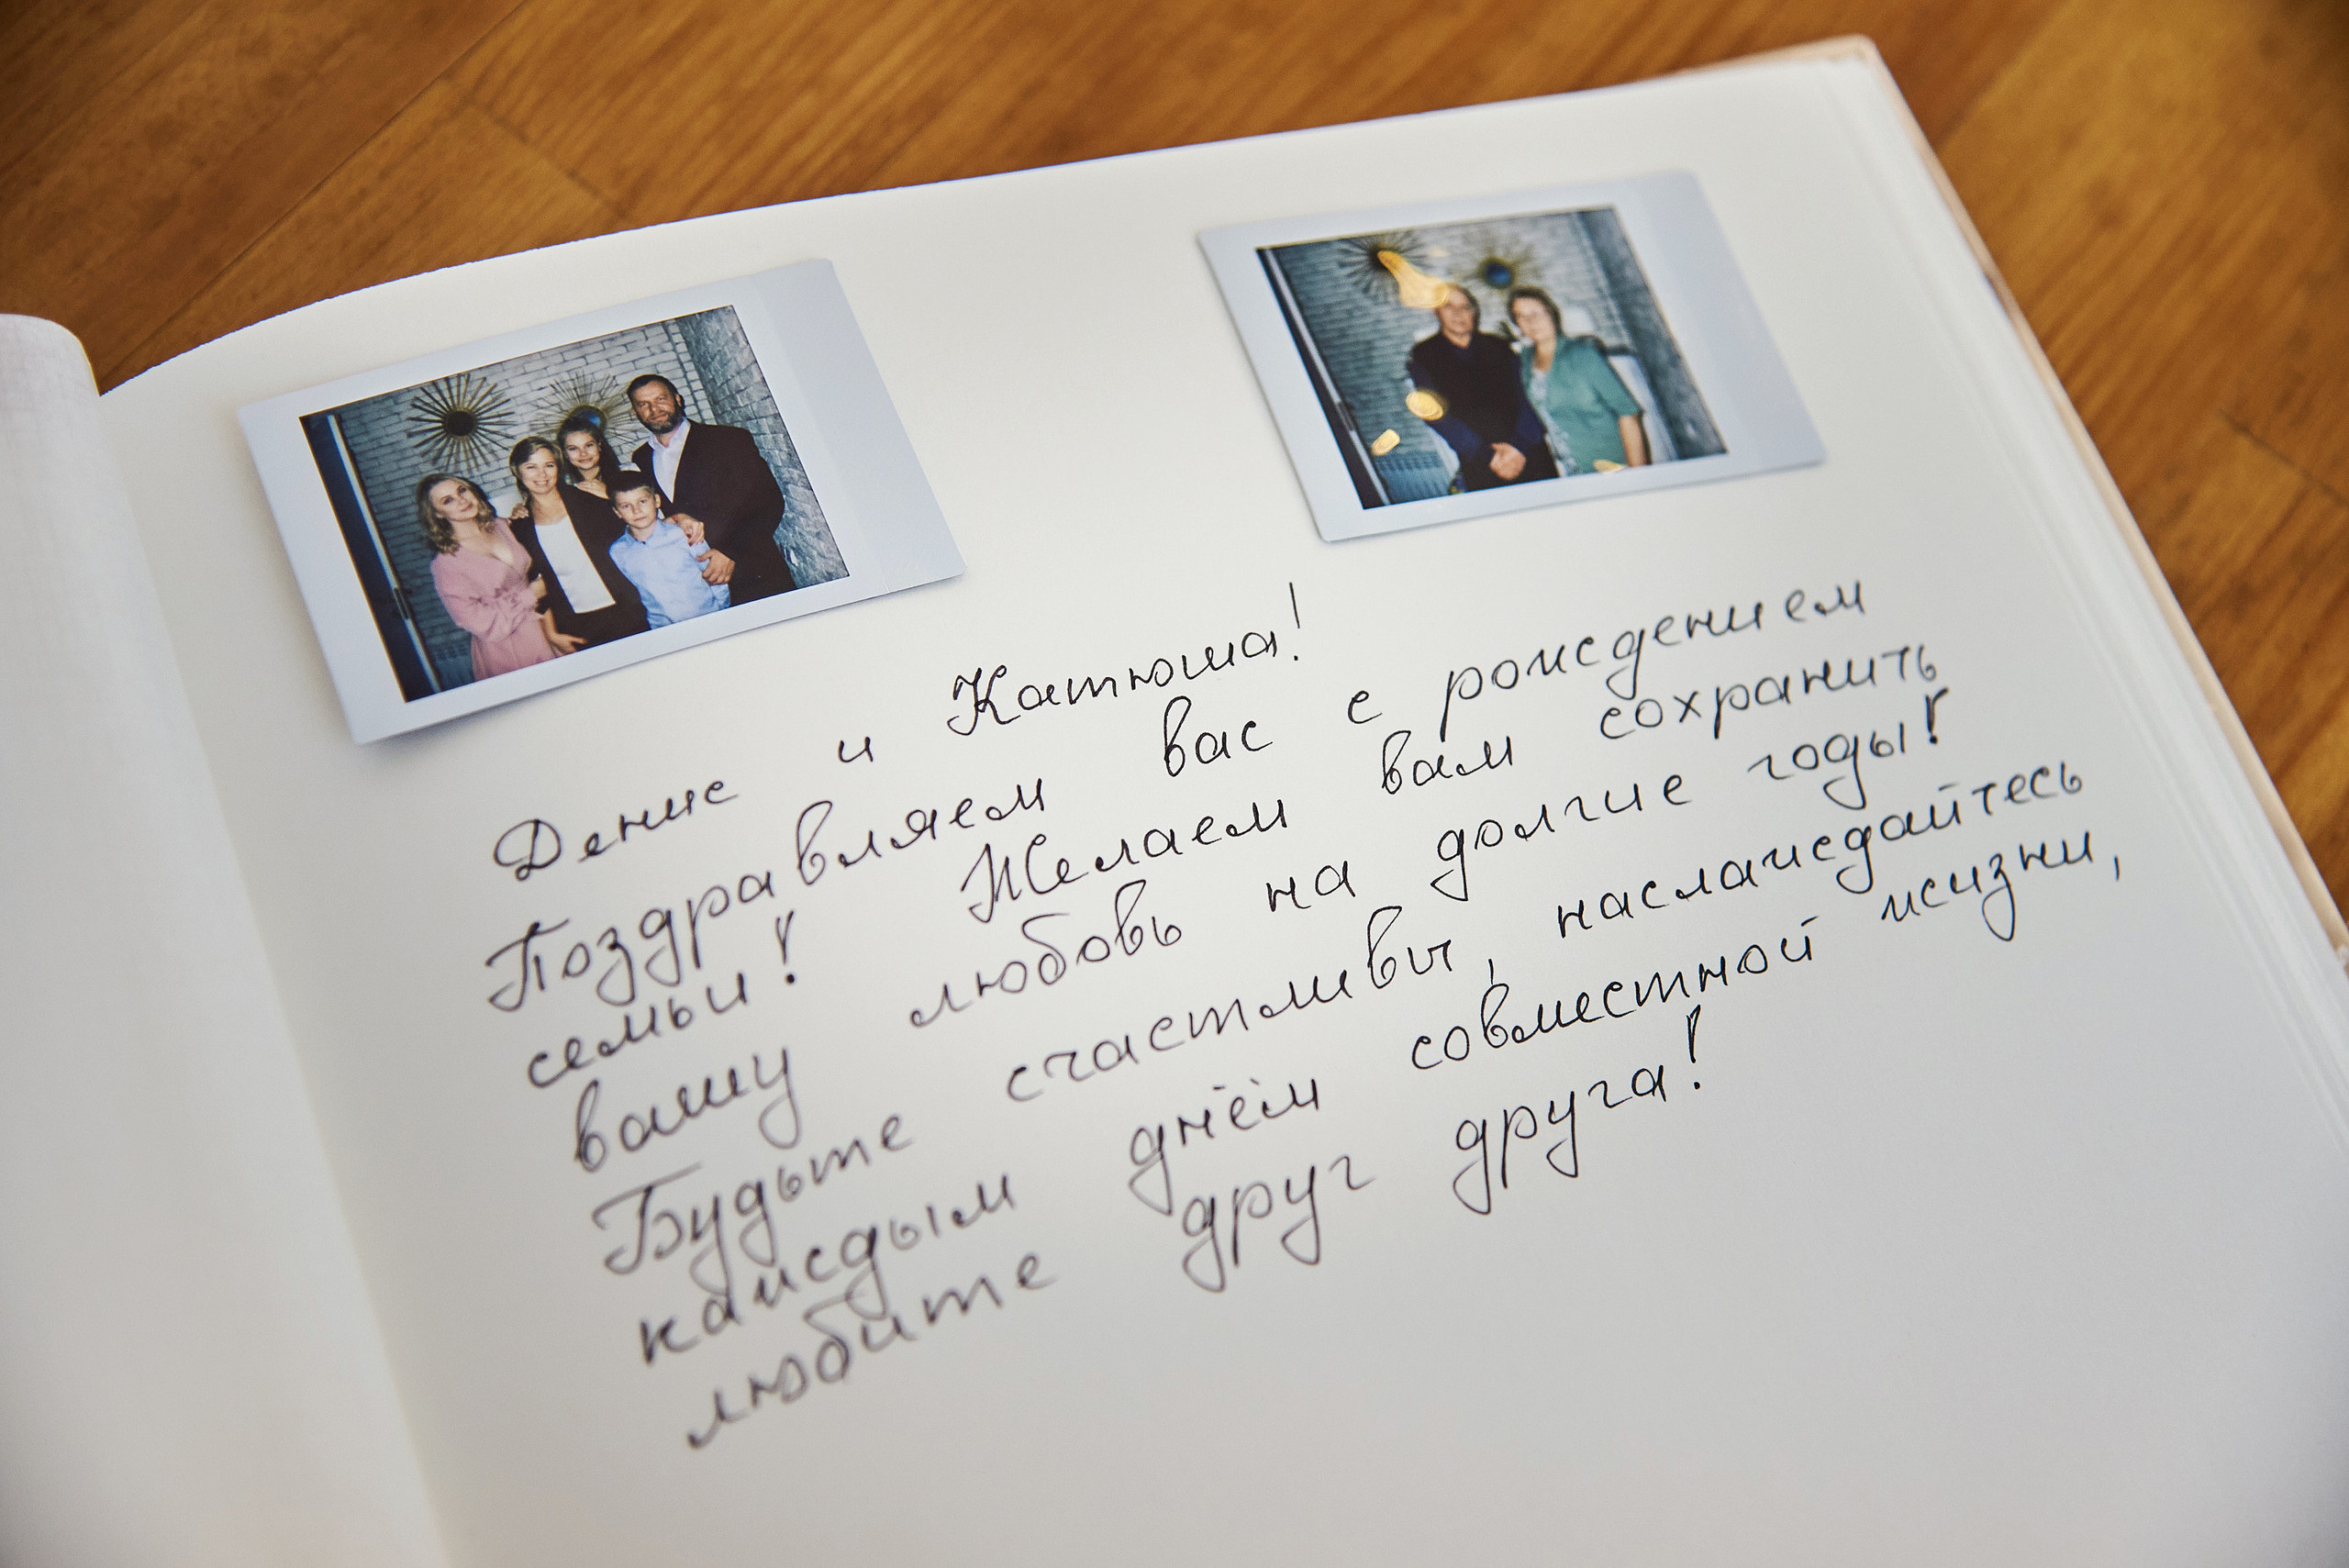 Денис и Катюша!
Поздравляем вас с рождением
семьи! Желаем вам сохранить
вашу любовь на долгие годы!
Будьте счастливы, наслаждайтесь
каждым днём совместной жизни,
любите друг друга!